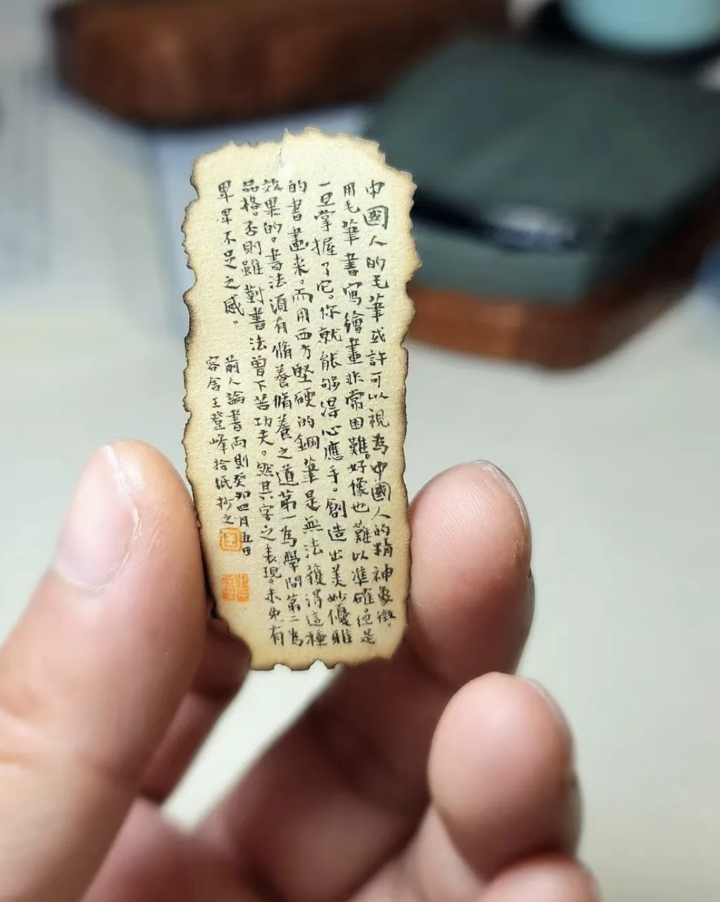 中國人的毛筆或許可以視為中國人的精神象徵。
用毛筆書寫繪畫非常困難。好像也難以準確但是
一旦掌握了它。你就能夠得心應手。創造出美妙優雅
的書畫來。而用西方堅硬的鋼筆是無法獲得這種
效果的。書法須有脩養脩養之道第一為學問第二為
品格。否則雖對書法曾下苦功夫。然其字之表現。未免有
卑卑不足之感。
前人論書兩則癸卯四月五日
客舍王登峰拾紙抄之